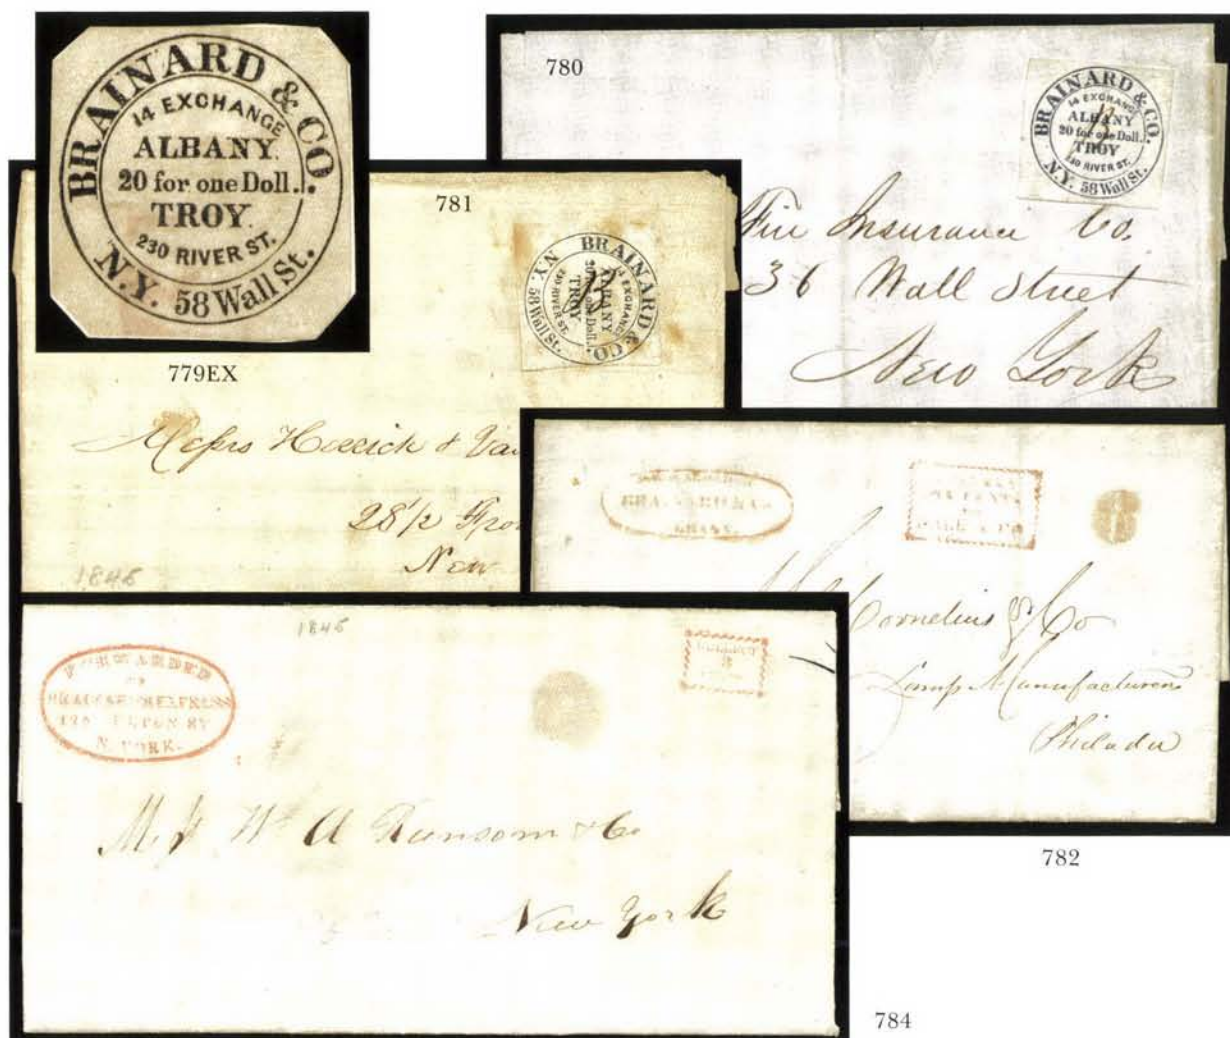 BRAINARD & CO.
14 EXCHANGE
ALBANY.
20 for one Doll.
TROY.
230 RIVER ST.
N.Y. 58 Wall St.
779EX
780
BRAINARD & CO.
14 EXCHANGE
ALBANY
20 for one Doll.
TROY
230 RIVER ST.
N.Y. 58 Wall St.
Fire Insurance Co.
36 Wall Street
New York
781
BRAINARD & CO.
14 EXCHANGE
ALBANY
20 for one Doll.
TROY
230 RIVER ST.
N.Y. 58 Wall St.
B
Messrs
28 1/2
New
1845
Cornelius & Co
Lamp Manufacturers
782
1845
FORWARDED
BY
N. YORK.
Wm A Ransom & Co
New York
784